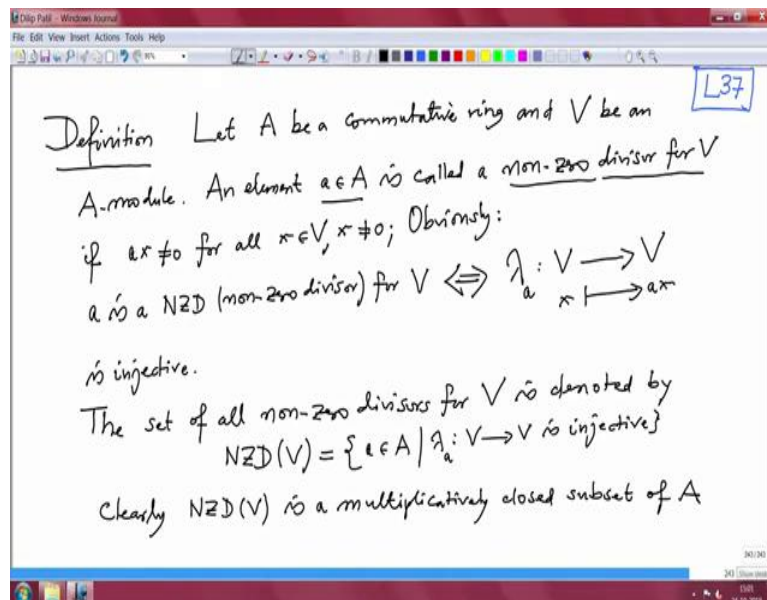 Dilip Patil - Windows Journal
File Edit View Insert Actions Tools Help
L37
Definition Let A be a commutative ring and V be an
A-module. An element a ∈ A is called a non-zero divisor for V
if ax ≠ 0 for all x ∈ V, x ≠ 0; Obviously:
a is a NZD (non-zero divisor) for V ⟺ λ_a : V → V
x ↦ ax
is injective.
The set of all non-zero divisors for V is denoted by
NZD(V) = {a ∈ A | λ_a : V → V is injective}
Clearly NZD(V) is a multiplicatively closed subset of A